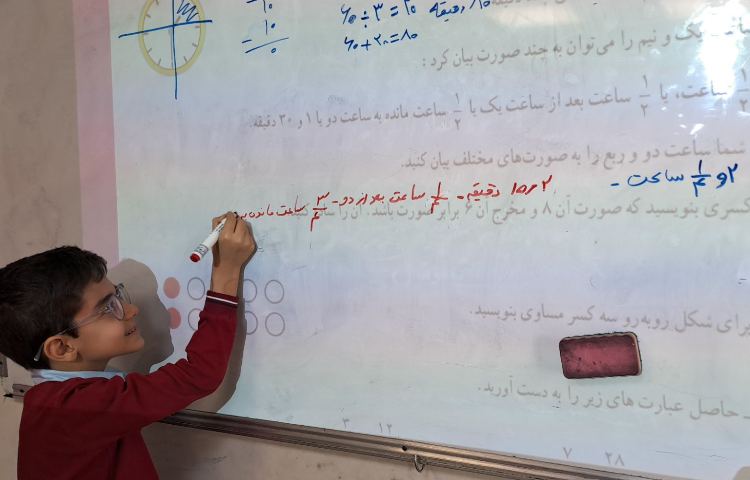 ۱۰
۶۰ ÷ ۳ = ۲۰ دقیقه ۸۰
- ۱۰
۶۰ + ۲۰ = ۸۰
۰
یک و نیم را می‌توان به چند صورت بیان کرد :
۱/۲ ساعت، یا ۱/۲ ساعت بعد از ساعت یک یا ۱/۲ ساعت مانده به ساعت دو یا ۱ و ۳۰ دقیقه.
شما ساعت دو و ربع را به صورت‌های مختلف بیان کنید.
۲ و ۱/۴ ساعت -
۲ و ۱۵ دقیقه - ۱/۴ ساعت بعد از دو - ۳/۴ ساعت مانده
کسری بنویسید که صورت آن ۸ و مخرج آن ۶ برابر صورت باشد. آن را ساده کنید
برای شکل روبه‌رو سه کسر مساوی بنویسید.
حاصل عبارت های زیر را به دست آورید.
۳ ۱۲
۷ ۲۸